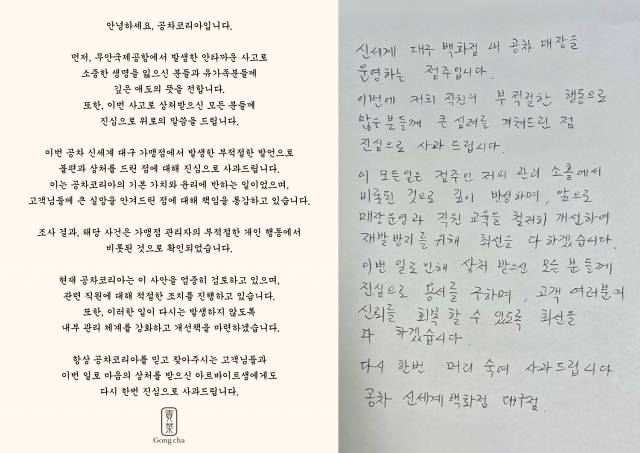 안녕하세요, 공차코리아입니다.
먼저, 무안국제공항에서 발생한 안타까운 사고로
소중한 생명을 잃으신 분들과 유가족분들께
깊은 애도의 뜻을 전합니다.
또한, 이번 사고로 상처받으신 모든 분들께
진심으로 위로의 말씀을 드립니다.
이번 공차 신세계 대구 가맹점에서 발생한 부적절한 발언으로
불편과 상처를 드린 점에 대해 진심으로 사과드립니다.
이는 공차코리아의 기본 가치와 윤리에 반하는 일이었으며,
고객님들께 큰 실망을 안겨드린 점에 대해 책임을 통감하고 있습니다.
조사 결과, 해당 사건은 가맹점 관리자의 부적절한 개인 행동에서
비롯된 것으로 확인되었습니다.
현재 공차코리아는 이 사안을 엄중히 검토하고 있으며,
관련 직원에 대해 적절한 조치를 진행하고 있습니다.
또한, 이러한 일이 다시는 발생하지 않도록
내부 관리 체계를 강화하고 개선책을 마련하겠습니다.
항상 공차코리아를 믿고 찾아주시는 고객님들과
이번 일로 마음의 상처를 받으신 아르바이트생에게도
다시 한번 진심으로 사과드립니다.
貢茶
Gong cha
신세계 대구 백화점 내 공차 매장을
운영하는 점주입니다.
이번에 저희 직원의 부적절한 행동으로
많은 분들께 큰 심려를 끼쳐드린 점
진심으로 사과 드립니다.
이 모든일은 점주인 저의 관리 소홀에서
비롯된 것으로 깊이 반성하며, 앞으로
매장운영과 직원 교육을 철저히 개선하여
재발방지를 위해 최선을 다 하겠습니다.
이번 일로 인해 상처 받으신 모든 분들께
진심으로 용서를 구하며, 고객 여러분의
신뢰를 회복 할 수 있도록 최선을
다 하겠습니다.
다시 한번 머리 숙여 사과드립니다
공차 신세계백화점 대구점.